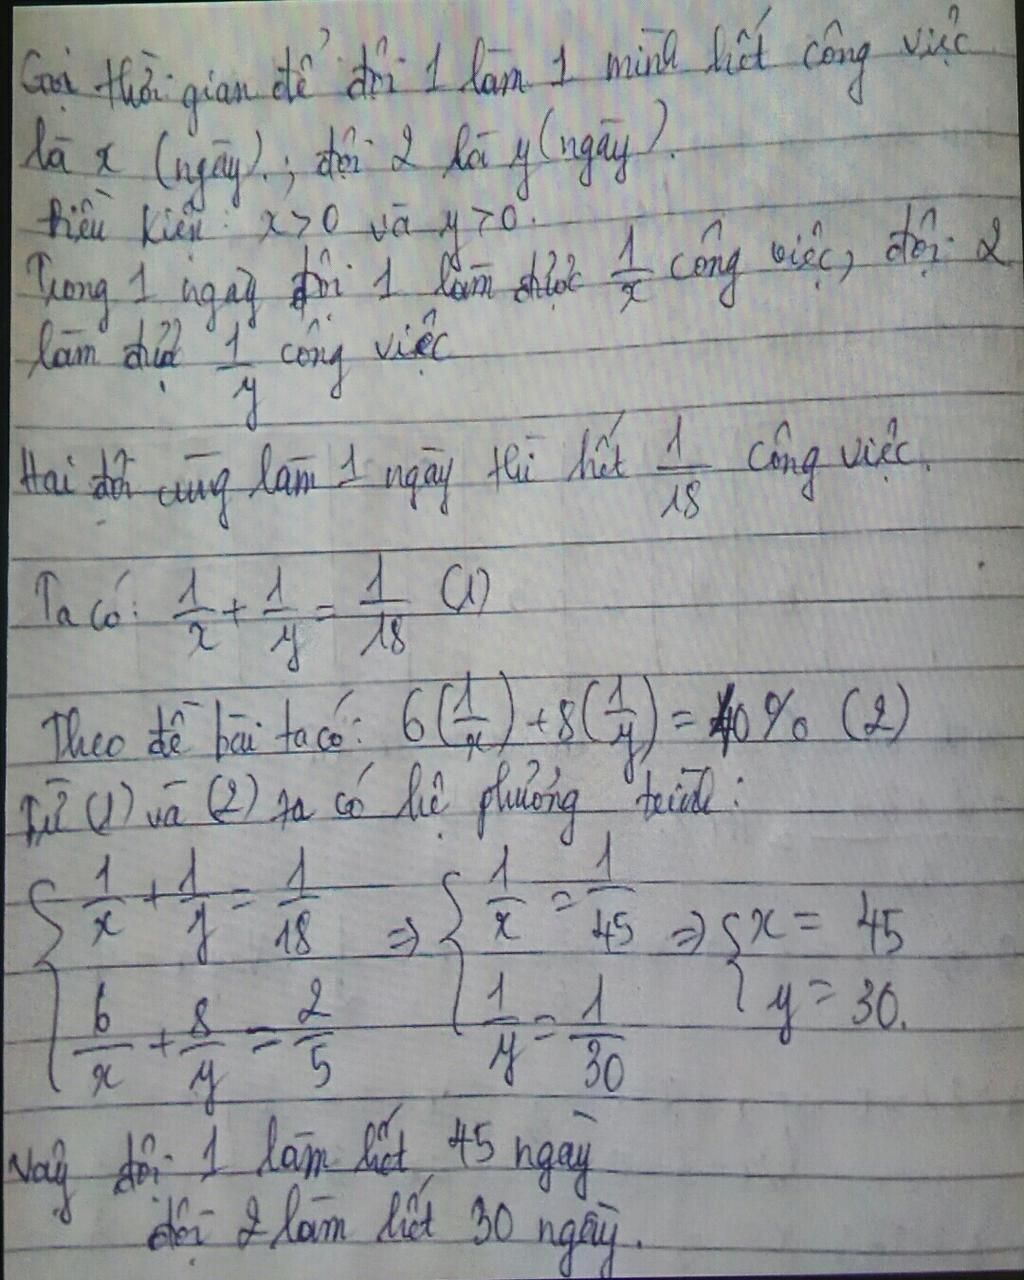 Gọi thời gian để đội 1 làm 1 mình hết công việc
là x (ngày), đội 2 là y (ngày).
Điều kiện: x > 0 và y > 0.
Trong 1 ngày đội 1 làm được 1/x công việc, đội 2
làm được 1/y công việc
Hai đội cùng làm 1 ngày thì hết 1/18 công việc.
Ta có: 1/x + 1/y = 1/18 (1)
Theo đề bài ta có: 6(1/x) + 8(1/y) = 40% (2)
Từ (1) và (2) ta có hệ phương trình:
{ 1/x + 1/y = 1/18 => { 1/x = 1/45 => { x = 45
6/x + 8/y = 2/5 1/y = 1/30 y = 30.
Vậy đội 1 làm hết 45 ngày
đội 2 làm hết 30 ngày.